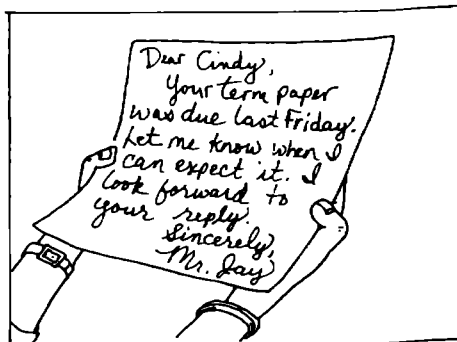 Dear Cindy,
Your term paper
was due last Friday.
Let me know when I
can expect it. I
look forward to
your reply.
Sincerely,
Mr. Jay